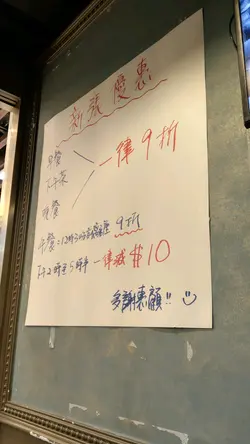 新張優惠
早餐
下午茶
晚餐
一律9折
午餐:12時3 9折
下午2時至5時半 一律減$10
多謝惠顧!!